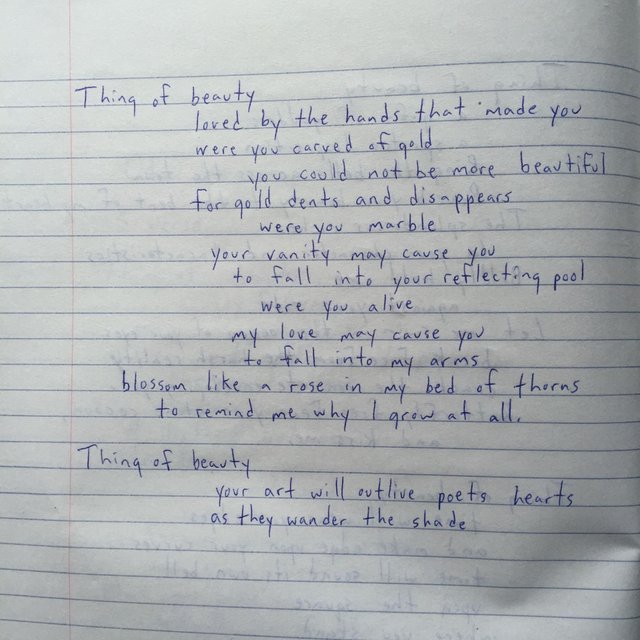 Thing of beauty
loved by the hands that made you
were you carved of gold
you could not be more beautiful
for gold dents and disappears
were you marble
your vanity may cause you
to fall into your reflecting pool
were you alive
my love may cause you
to fall into my arms
blossom like a rose in my bed of thorns
to remind me why I grow at all.
Thing of beauty
your art will outlive poets hearts
as they wander the shade